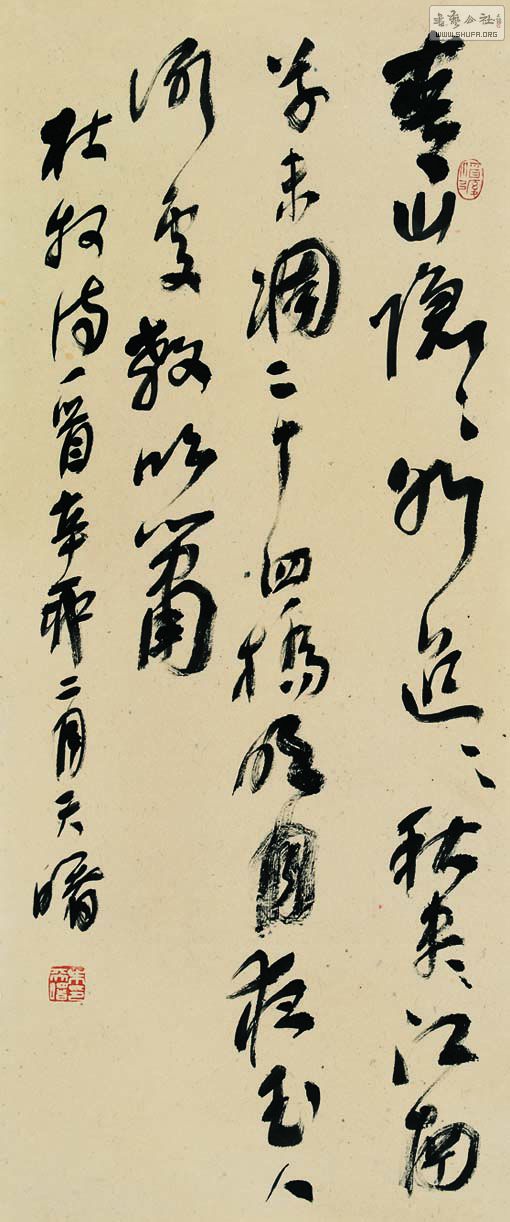 青山隱〻水迢〻秋盡江南
草未凋二十四橋明月夜玉人
何處教吹簫
杜牧詩一首辛卯二月天曙
書藝公社
WWW.SHUFA.ORG